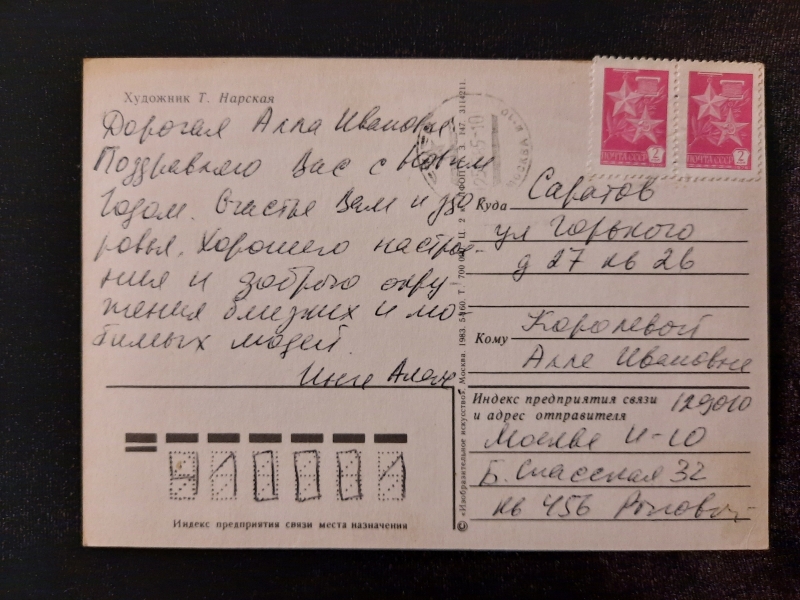 Художник Т. Нарская
Дорогая Алла Ивановна
Поздравляю Вас с Новым
Годом. Счастья Вам и здо
ровья. Хорошего настрое-
ния и доброго окру
жения близких и лю
бимых людей.
Инна
ПОЧТА СССР 2
ПОЧТА СССР 2
МОСКВА
Куда Саратов
ул Горького
д 27 кв 26
Кому Королевой
Алле Ивановне
Индекс предприятия связи
и адрес отправителя 129010
Москва И-10
Б. Спасская 32
кв 456
410001
Индекс предприятия связи места назначения
© «Изобразительное искусство». Москва. 1983.